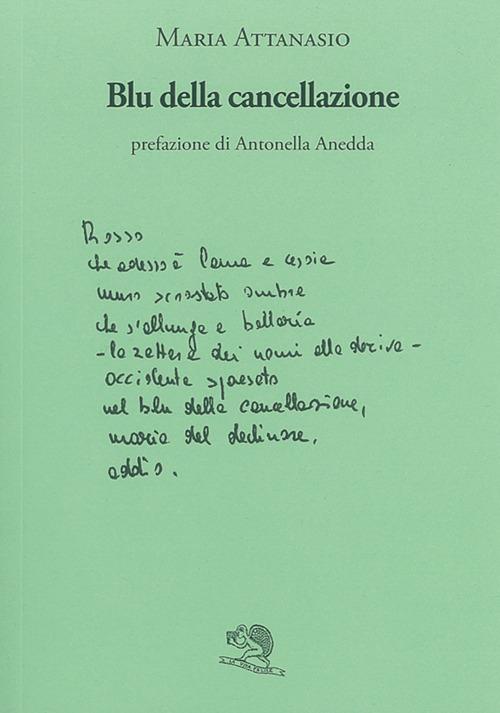 MARIA ATTANASIO
Blu della cancellazione
prefazione di Antonella Anedda
Rosso
che adesso è lama e cessia
muro scrostato ombre
che s'allunga e
- la zattera dei nomi alla deriva -
occidente spaesato
nel blu della cancellazione,
marcia del declinare,
addio.
LA VITA FELICE